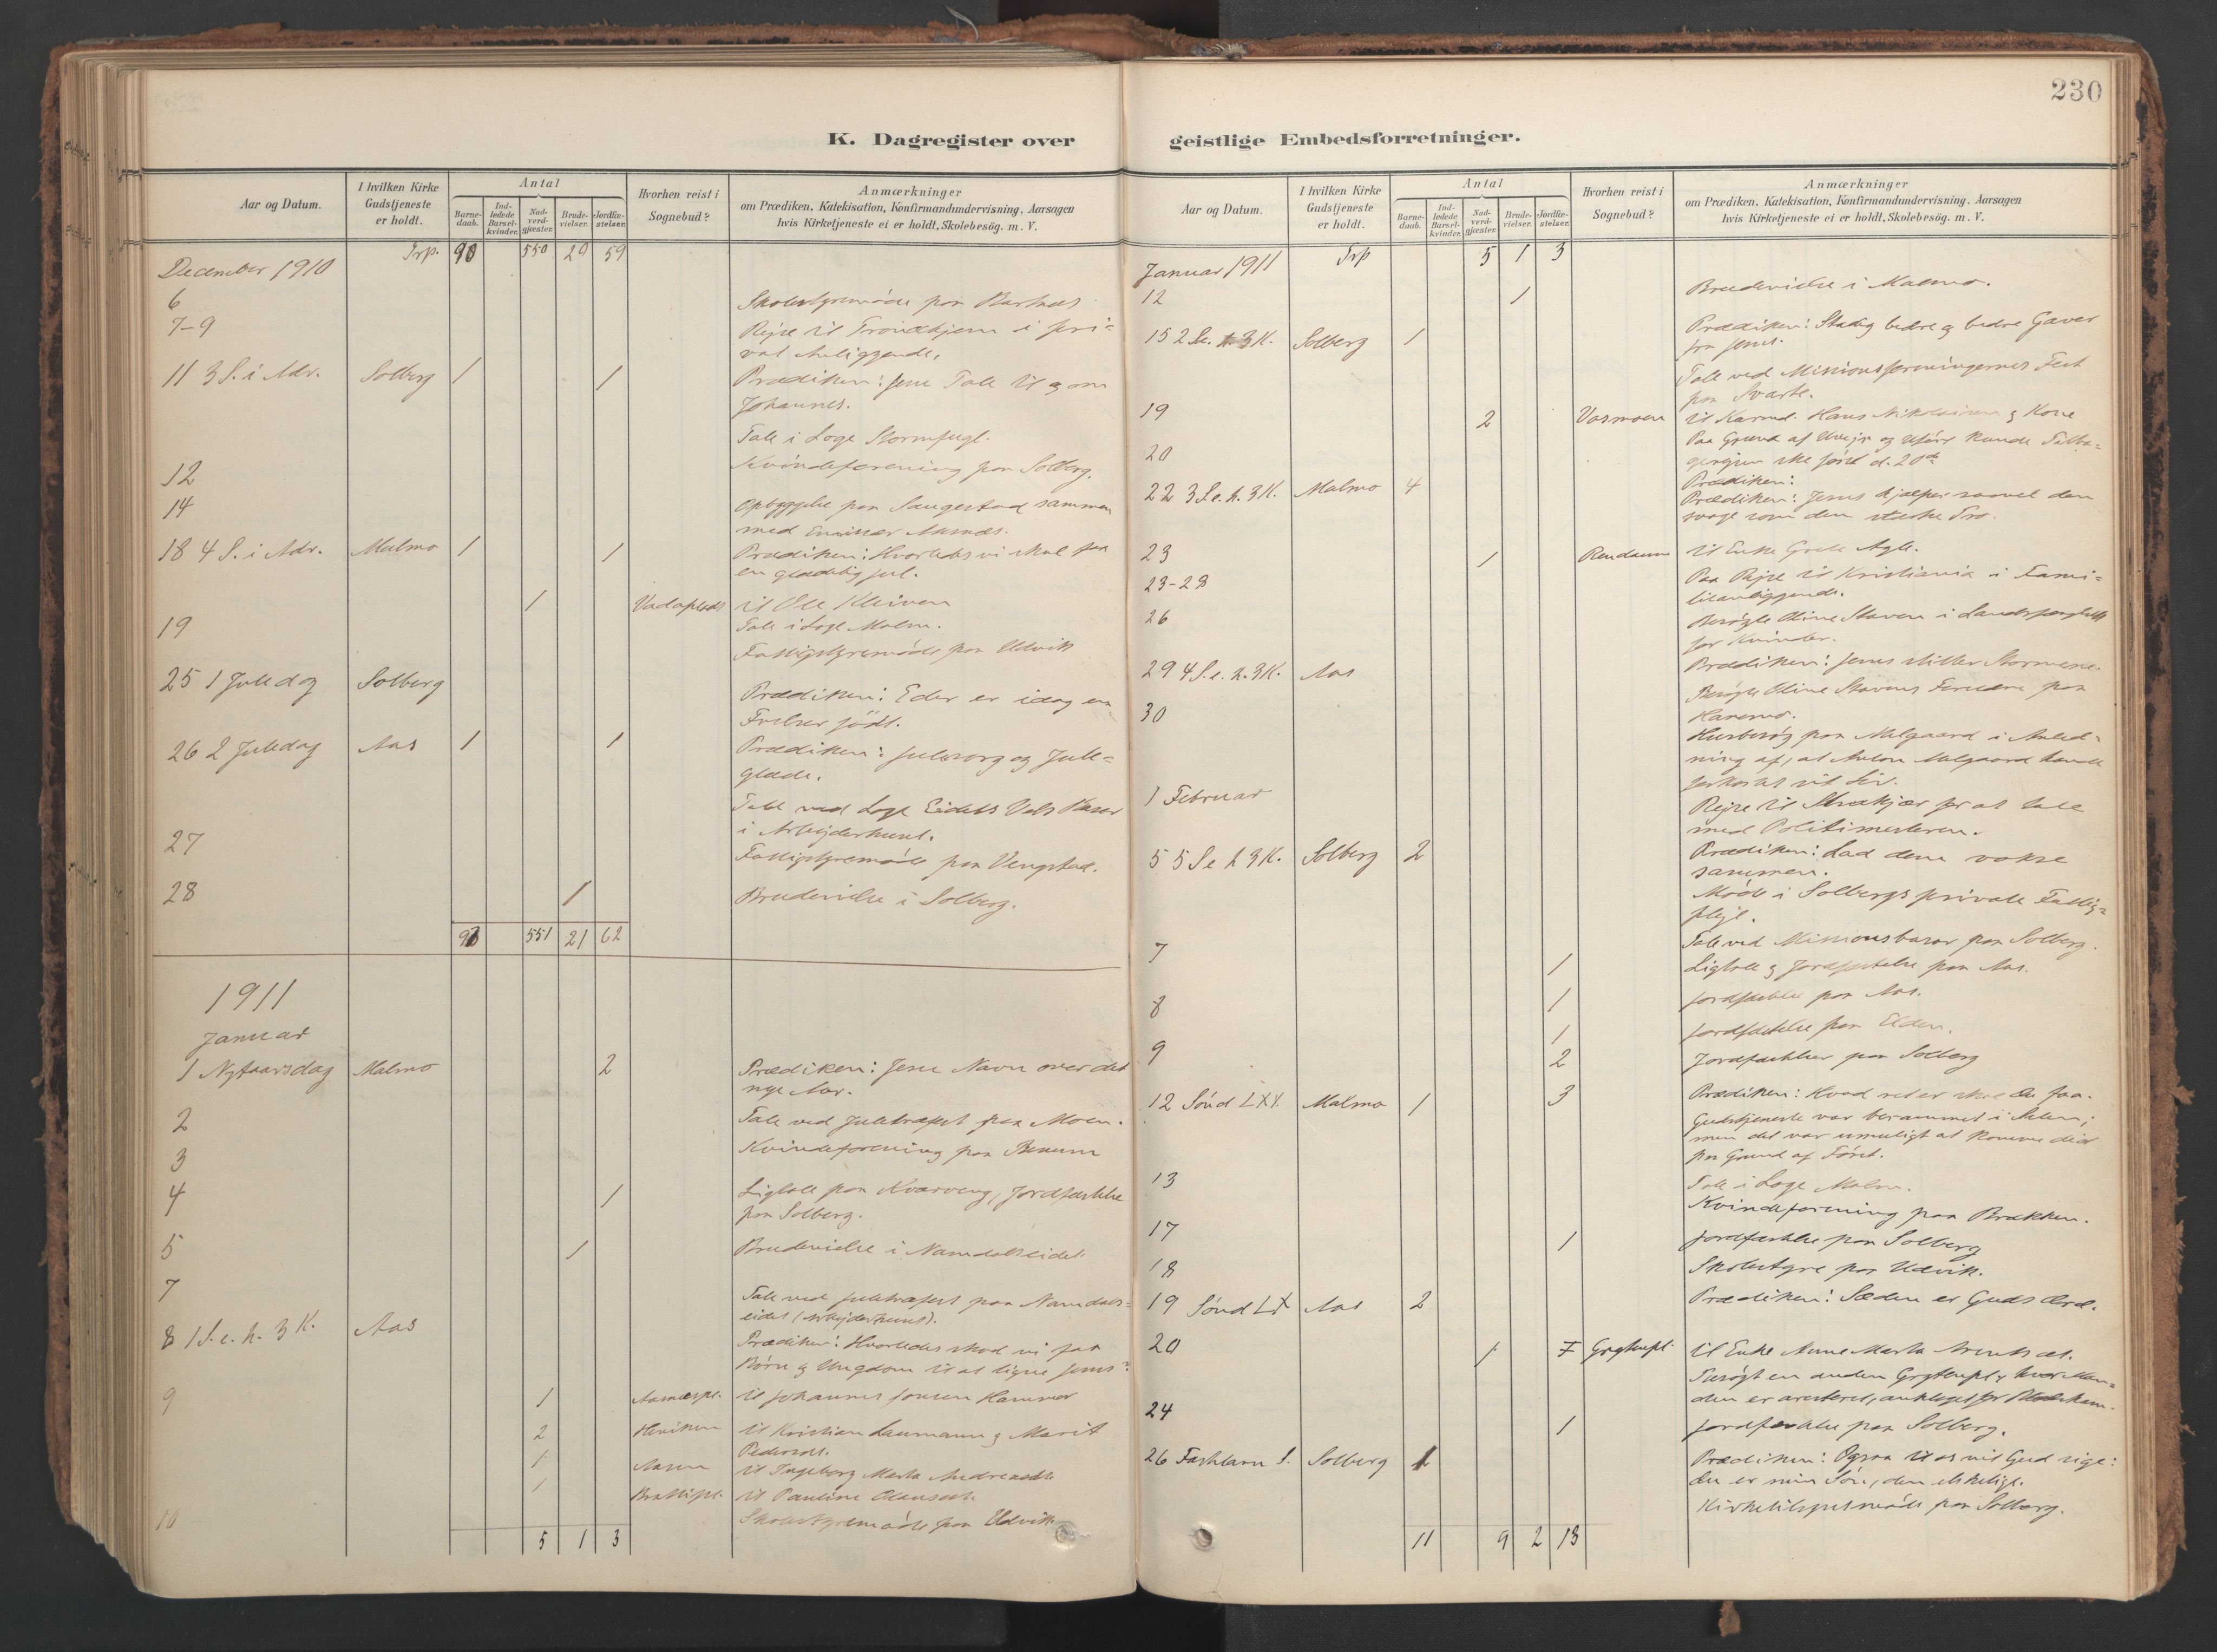 230
K. Dagregister over
geistlige Embedsforretninger.
Aar og Datum.
I hvilken Kirke Gudstjeneste er holdt.
Antal
Barne-daab.
Ind-ledede Barsel-kvinder.
Nad-verd-gjæster.
Brude-vielser.
Jordfæ-stelser.
Hvorhen reist i Sognebud?
Anmærkninger
om Prædiken, Katekisation, Konfirmandundervisning, Aarsagen
hvis Kirketjeneste ei er holdt, Skolebesög. m. V.
Trp. 90 550 20 59
December 1910
6 Skolestyremöde paa
7-9 Rejse til Trondhjem i pri-
vat Anliggende.
11 3 S. i Adv. Solberg 1 1 Prædiken: Jesu Tale til og om
Johannes.
Tale i Loge Stormfugl.
12 Kvindeforening paa Solberg.
14 Opbyggelse paa Saugestad sammen
med
18 4 S. i Adv. Malmo 1 1 Prædiken: Hvorledes vi skal faa
en glædelig Jul.
1 til Ole Kleiven
19 Tale i Loge Malm.
Fattigstyremöde paa Udvik
25 1 Juledag Solberg Prædiken: Eder er idag en
Frelser födt.
26 2 Juledag Aas 1 1 Prædiken: Julesorg og Jule-
glæde.
Tale ved Loge Eidets Vels Basar
i Arbejderhuset.
27 Fattigstyremöde paa Vengstad.
28 1 Brudevielse i Solberg.
551 21 62
1911
Januar
1 Nytaarsdag Malmo 2 Prædiken: Jesu Navn over det
nye Aar.
2 Tale ved Juletræfest paa Moen.
3 Kvindeforening paa
4 1 Ligtale paa Kvarveng, Jordfæstelse
paa Solberg.
5 1 Brudevielse i Namdalseidet
7 Tale ved Juletræfest paa Namdals-
eidet (Arbejderhuset).
8 1 S. e. h. 3 K. Aas Prædiken: Hvorledes skal vi faa
Börn og Ungdom til at ligne Jesus?
9 1 til Johannes Jonsen Hammer
2 til Kristian Laumann og Marit
Pedersdt.
1 Aasen til Ingeborg Marta Andreasdt.
1 til Pauline Olausdt.
10 Skolestyremöde paa Udvik
5 1 3
Aar og Datum.
I hvilken Kirke Gudstjeneste er holdt.
Antal
Barne-daab.
Ind-ledede Barsel-kvinder.
Nad-verd-gjæster.
Brude-vielser.
Jordfæ-stelser.
Hvorhen reist i Sognebud?
Anmærkninger
om Prædiken, Katekisation, Konfirmandundervisning, Aarsagen
hvis Kirketjeneste ei er holdt, Skolebesög. m. V.
Januar 1911 Trp 5 1 3
12 1 Brudevielse i Malmo.
15 2 S.e. h 3 K. Solberg 1 Prædiken: Stadig bedre og bedre Gaver
fra Jesus.
Tale ved Missionsforeningernes Fest
paa Svarte.
19 2 til Hans Nikolaisen og Kone
20 Paa Grund af Uvejr og Uföre kunde Tilba-
gerejsen ske först d. 20de
22 3 S.e. h. 3 K. Malmo 4 Prædiken:
Prædiken: Jesus hjælper saavel den
svage som den stærke Tro.
23 1 til Enke Agle.
23-28 Paa Rejse til Kristiania i Fami-
lieanliggende.
26 Besögte Oline Staven i Landsfængslet
for Kvinder.
29 4 S.e. h. 3 K. Aas Prædiken: Jesus stiller Stormene.
30 Besögte Oline Stavens Forældre paa
Husbesög paa Aalgaard i Anled-
ning af, at Anton Aalgaard havde
forkortet sit Liv.
1 Februar Rejse til Stenkjær for at tale
med Politimesteren.
5 5 S e h 3 K. Solberg 2 Prædiken: Lad dem vokse
sammen.
Möde i Solbergs private Fattig-
pleje.
7 Tale ved Missionsbasar paa Solberg.
1 Ligtale og Jordfæstelse paa Aas.
8 1 Jordfæstelse paa Aas.
1 Jordfæstelse paa Elden.
9 2 Jordfæstelser paa Solberg
12 Sönd LXX. Malmo 1 3 Prædiken: Hvad ret er skal du faa.
Gudstjeneste var berammet i
men det var umuligt at komme did
paa Grund af Föret.
13 Tale i Loge Malm.
Kvindeforening paa Brækken.
17 1 Jordfæstelse paa Solberg
18 Skolestyre paa Udvik.
19 Sönd LX Aas 2 Prædiken: Sæden er Guds Ord.
20 1 til Enke Anne Marta
den er arresteret, anklaget for
24 1 Jordfæstelse paa Solberg.
26 Fastelavn S. Solberg 1 Prædiken: Ogsaa til os vil Gud sige:
du er min Sön, den elskelige.
Kirketilsynsmöde paa Solberg.
11 9 2 13